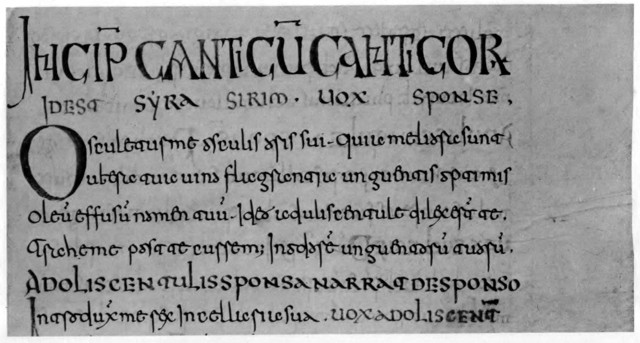 INCIP̄ CANTICŪ CANTICOR
IDEST SYRA SIRIM · UOX SPONSE ·
Osculetur me osculis oris sui · Quia meliora sunt
ubera tua uino flagrantia unguentis optimis
oleū effusū nomen tuū · Ideo aduliscentule dilexer̄t te.
Trahe me post te currem; In odorē unguentorū tuorū.
ADOLISCENTULIS SPONSA NARRAT DE SPONSO
Introdux̄ me rex In cellaria sua . UOX ADOLISCENT̄